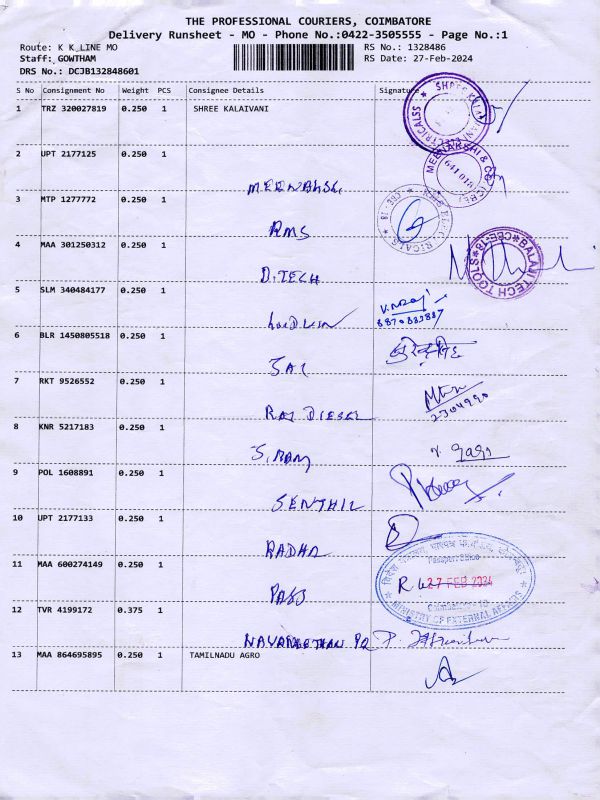 THE PROFESSIONAL COURIERS, COIMBATORE
Delivery Runsheet - MO - Phone No.:0422-3505555 - Page No.:1
Route: K K_LINE MO RS No.: 1328486
Staff: GOWTHAM RS Date: 27-Feb-2024
DRS No.: DCJB132848601
S No Consignment No Weight PCS Consignee Details Signature
1 TRZ 320027819 0.250 1 SHREE KALAIVANI
2 UPT 2177125 0.250 1
MEENAKSI
3 MTP 1277772 0.250 1
RMS
4 MAA 301250312 0.250 1
D.TECH BALAJI TECH TOOLS
5 SLM 340484177 0.250 1
6 BLR 1450805518 0.250 1
SAI
7 RKT 9526552 0.250 1
RAJ DIESEL
8 KNR 5217183 0.250 1
S. RAM
9 POL 1608891 0.250 1
SENTHIL
10 UPT 2177133 0.250 1
RADHA
11 MAA 600274149 0.250 1
PASS 27 FEB 2024
MINISTRY OF EXTERNAL AFFAIRS
12 TVR 4199172 0.375 1
NAVANEETHAN
13 MAA 864695895 0.250 1 TAMILNADU AGRO